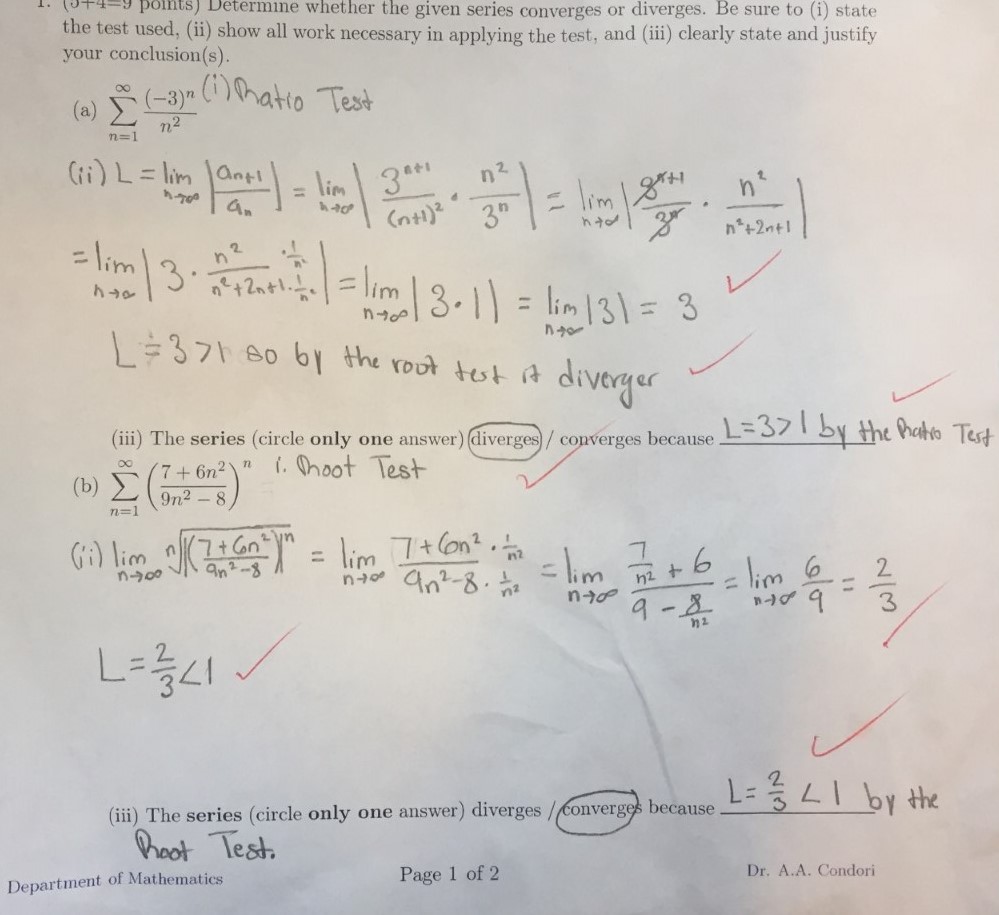 1. (5+4=9 points) Determine whether the given series converges or diverges. Be sure to (i) state
the test used, (ii) show all work necessary in applying the test, and (iii) clearly state and justify
your conclusion(s).
(a) ∑_{n=1}^{∞} (-3)^n / n^2 (i) Ratio Test
(ii) L = lim_{n→∞} |a_{n+1} / a_n| = lim_{n→∞} |3^{n+1} / (n+1)^2 · n^2 / 3^n| = lim_{n→∞} |3^{n+1} / 3^n · n^2 / n^2+2n+1|
= lim_{n→∞} |3 · n^2 · 1/n^2 / n^2+2n+1 · 1/n^2| = lim_{n→∞} |3·1| = lim_{n→∞} |3| = 3
L = 3 > 1 so by the root test it diverges
(iii) The series (circle only one answer) diverges / converges because L=3>1 by the Ratio Test
(b) ∑_{n=1}^{∞} (7 + 6n^2 / 9n^2 − 8)^n i. Root Test
(ii) lim_{n→∞} ⁿ√|(7+6n^2 / 9n^2-8)^n| = lim_{n→∞} 7+6n^2 · 1/n^2 / 9n^2-8 · 1/n^2 = lim_{n→∞} 7/n^2 + 6 / 9 - 8/n^2 = lim_{n→∞} 6/9 = 2/3
L = 2/3 < 1
(iii) The series (circle only one answer) diverges / converges because L = 2/3 < 1 by the
Root Test.
Department of Mathematics Page 1 of 2 Dr. A.A. Condori